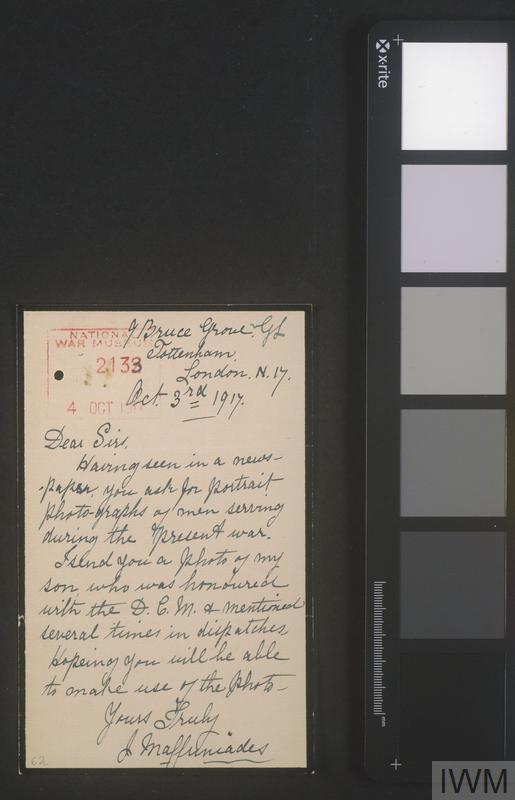 NATIONAL
WAR MUSEUM
2133
4 OCT 191
Bruce Grove
Tottenham.
London. N. 17.
Oct. 3rd 1917.
Dear Sirs,
Having seen in a news-
-paper, you ask for portrait
photographs of men serving
during the present war.
I send you a photo of my
son, who was honoured
with the D. C. M. & mentioned
several times in dispatches,
Hopeing you will be able
to make use of the photo-
Yours Truly
J
62
x-rite
mm
IWM